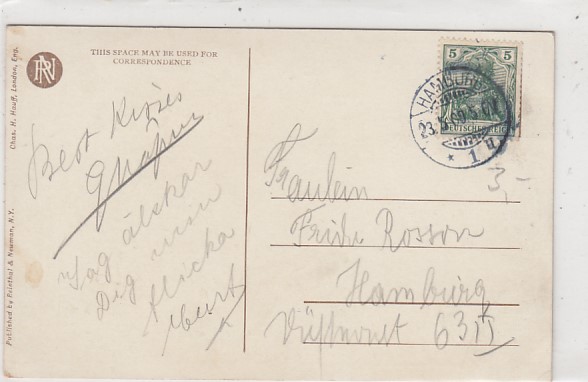 RN
THIS SPACE MAY BE USED FOR
CORRESPONDENCE
Chas. H. Hauff, London, Eng.
Published by Reinthal & Newman, N.Y.
Best Kisses
Jag älskar
Dig min
flicka
Kurt
5 5
DEUTSCHES REICH
HAMBURG
23.
* 1 n.
3,-
Fräulein
Frida Rosson
Hamburg
63 II